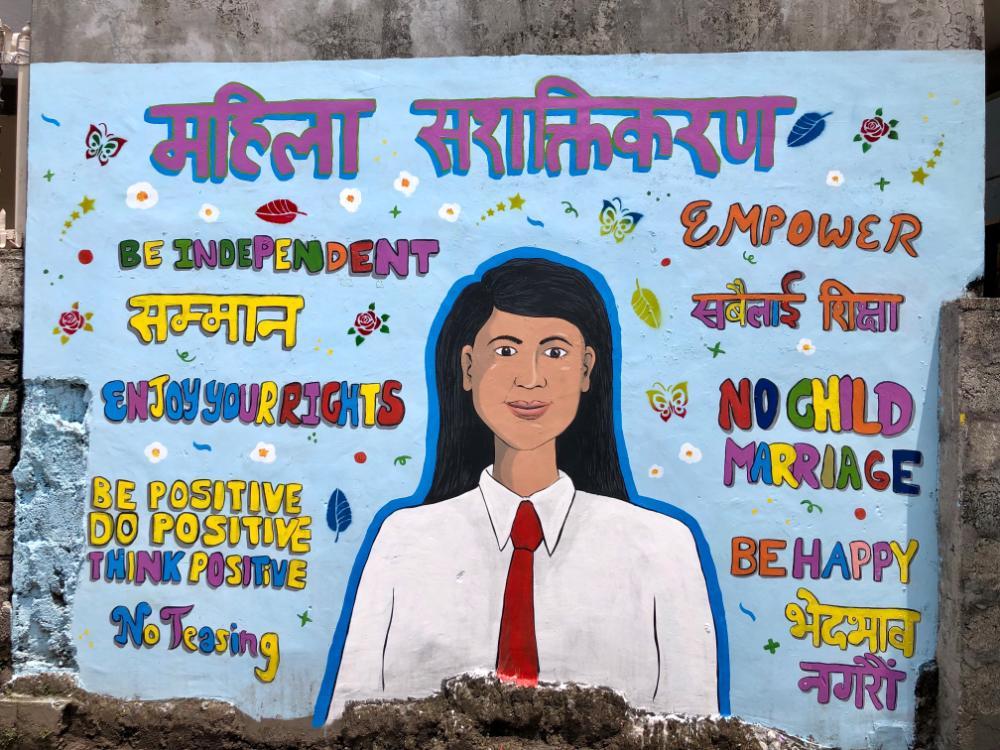 महिला सशक्तिकरण
BE INDEPENDENT
सम्मान
ENJOY YOUR RIGHTS
BE POSITIVE
DO POSITIVE
THINK POSITIVE
No Teasing
EMPOWER
सबैलाई शिक्षा
NO CHILD
MARRIAGE
BE HAPPY
भेदभाव
नगरौं